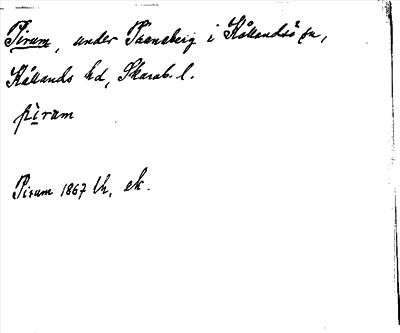 Pirum, under Traneberg i Kållandsö sn,
Kållands hd, Skarab. l.
pìram
Pirum 1867 lh, ek.